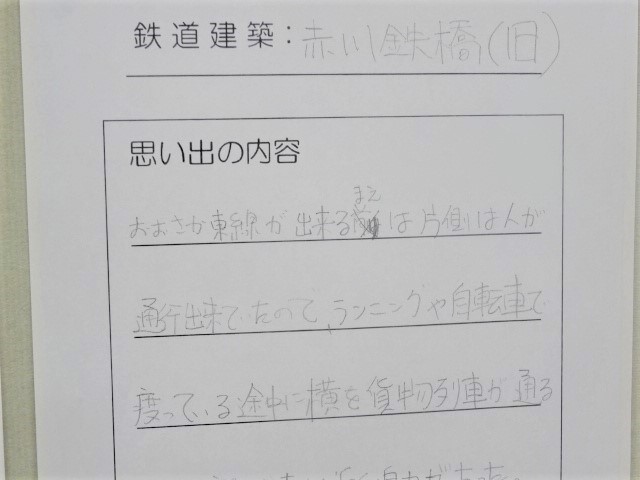 鉄道建築：赤川鉄橋(旧)
思い出の内容
まえ
おおさか東線が出来る は片側は人が
通行出来てたので、ランニングや自転車で
渡っている途中に横を貨物列車が通る